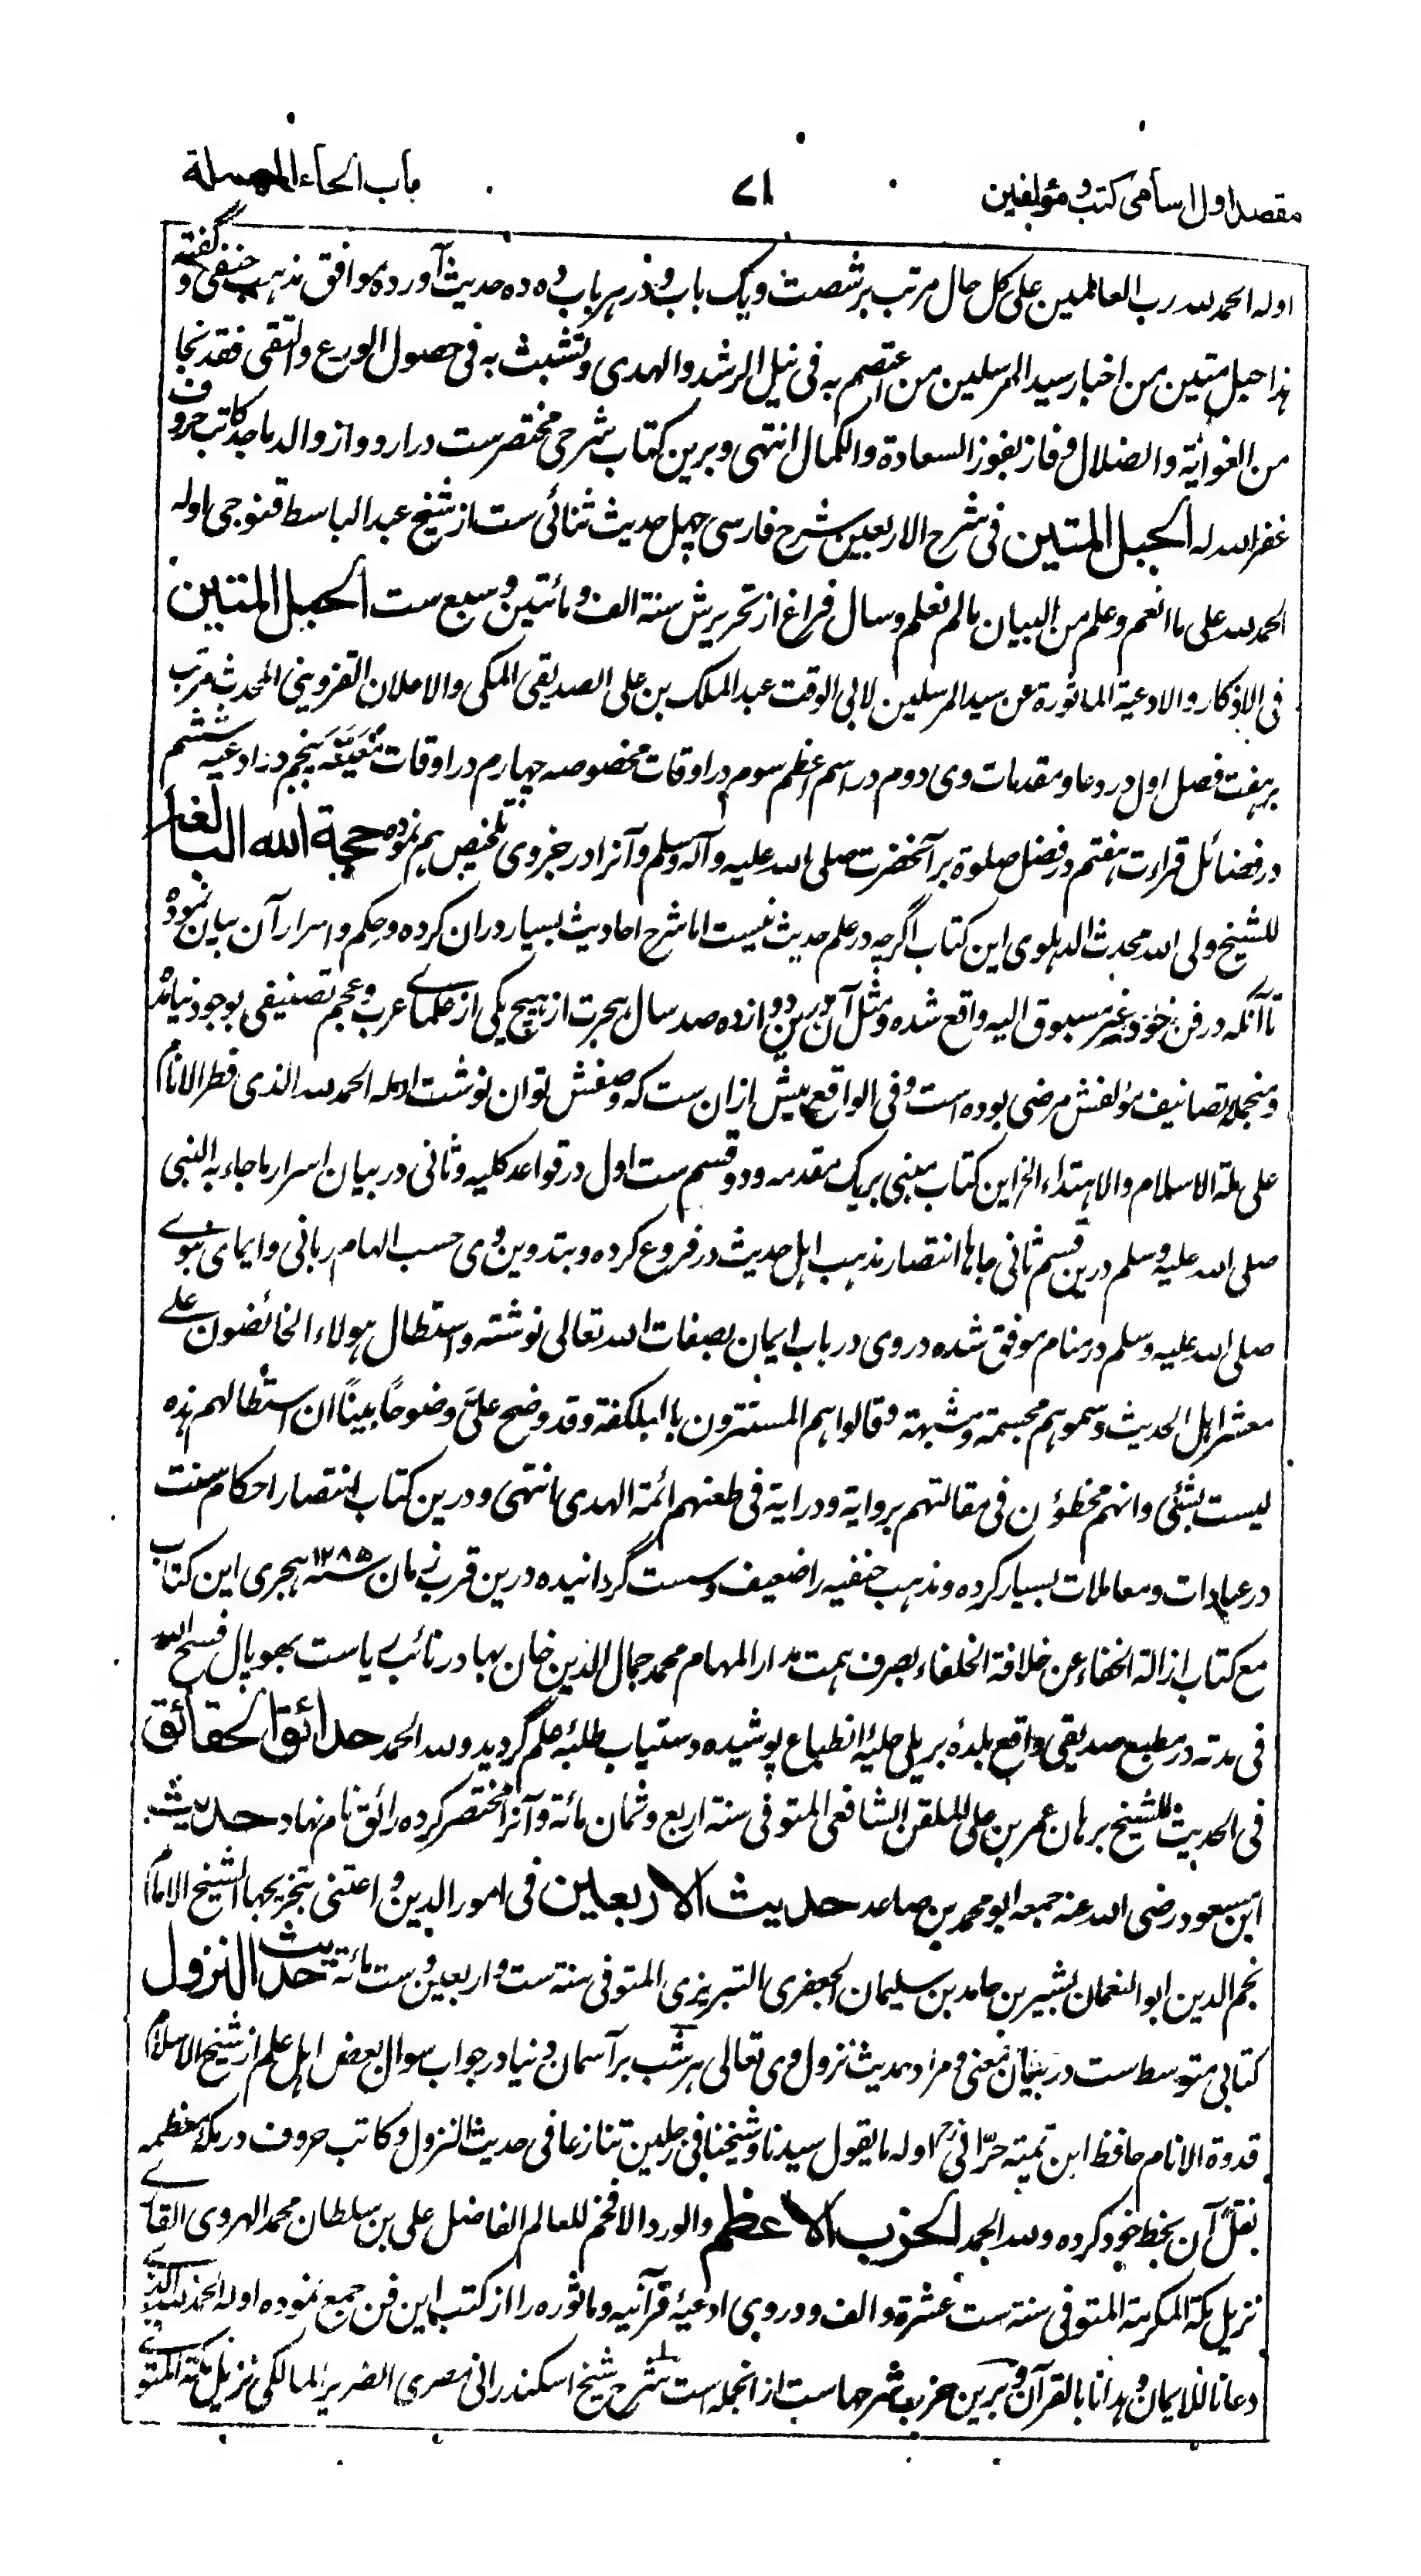 مقصد اول اسامی کتب و مؤلفین
۷۱
باب الحاء المهملة
اوله الحمد لله رب العالمین علی کل حال مرتب بر شصت و یک باب و در هر باب ده ده حدیث آورده موافق مذہب حنفی و گفته
ہذا حبل متین من اخبار سید المرسلین من اعتصم به فی نیل الرشد والهدی وتشبث به فی حصول الورع والتقی فقد نجا
من الغوایة والضلال و فاز بفوز السعادة والکمال انتهی و برین کتاب شرحی مختصرست در اردو از والد ماجد کاتب حروف
غفر الله له الحبل المتین فی شرح الاربعین شرح فارسی چهل حدیث ثنائی ست از شیخ عبد الباسط قنوجی اوله
الحمد لله علی ما انعم وعلم من البیان مالم نعلم و سال فراغ از تحریرش سنة الف و مائتین و سبع ست الحبل المتین
فی الاذکار والادعیة الماثورة عن سید المرسلین لابی الوقت عبد الملک بن علی الصدیقی المکی والاعلان القزوینی المحدث مرتب
بر ہفت فصل اول در دعا و مقدمات وی دوم در اسم اعظم سوم در اوقات مخصوصه چهارم در اوقات معینه پنجم در ادعیه ششم
در فضائل قراءت ہفتم در فضل صلوة بر آنحضرت صلی الله علیه وآله وسلم و آنرا در جزوی تلخیص ہم نموده حجة الله البالغة
للشیخ ولی الله محدث الدہلوی این کتاب اگرچه در علم حدیث نیست اما شرح احادیث بسیار دران کرده و حکم و اسرار آن بیان نموده
تا آنکه در فن خود غیر مسبوق الیه واقع شده و مثل آن درین دوازده صد سال ہجرت از ہیچ یکی از علمای عرب و عجم تصنیفی بوجود نیامده
و منجمله تصانیف مؤلفش مرضی بوده است و فی الواقع بیش ازان ست که وصفش توان نوشت اوله الحمد لله الذی فطر الانام
علی ملة الاسلام والاہتداء الخ این کتاب مبنی بر یک مقدمه و دو قسم ست اول در قواعد کلیه و ثانی در بیان اسرار ما جاء به النبی
صلی الله علیه وسلم درین قسم ثانی جاہا انتصار مذہب اہل حدیث در فروع کرده و بتدوین وی حسب الهام ربانی و ایمای نبوی
صلی الله علیه وسلم در منام موفق شده در وی در باب ایمان بصفات الله تعالی نوشته واستطال ہولاء الخائضون علی
معشر اہل الحدیث وسموہم مجسمة ومشبهة وقالوا ہم المستترون بالبلکفة وقد وضح علیّ وضوحاً بیناً ان استطالتهم ہذه
لیست بشئ وانهم مخطؤن فی مقالتهم بروایة و درایة فی طعنهم ائمة الهدی انتهی و درین کتاب انتصار احکام سنت
در عبادات و معاملات بسیار کرده و مذہب حنفیه را ضعیف و سست گردانیده درین قرب زمان ۱۲۸۵سنه ہجری این کتاب
مع کتاب ازالة الخفاء عن خلافة الخلفاء بصرف ہمت مدار المهام محمد جمال الدین خان بهادر نائب ریاست بهوپال فسح الله
فی مدته در مطبع صدیقی واقع بلدۂ بریلی حلیۂ انطباع پوشیده دستیاب طلبۂ علم گردید ولله الحمد حدائق الحقائق
فی الحدیث للشیخ برهان عمر بن علی الملقن الشافعی المتوفی سنة اربع وثمان مائة و آنرا مختصر کرده رائق نام نهاد حدیث
ابن مسعود رضی الله عنه جمعه ابو محمد بن صاعد حدیث الاربعین فی امور الدین و اعتنی بتخریجها الشیخ الامام
نجم الدین ابو النعمان بشیر بن حامد بن سلیمان الجعفری التبریزی المتوفی سنة ست و اربعین و ست مائة حدیث النزول
کتابی متوسط ست در بیان معنی و مراد حدیث نزول وی تعالی ہر شب بر آسمان دنیا در جواب سوال بعض اہل علم از شیخ الاسلام
قدوة الانام حافظ ابن تیمیه حرّانی رح اوله ما یقول سیدنا وشیخنا فی رجلین تنازعا فی حدیث النزول و کاتب حروف در مکۂ معظمه
نقل آن بخط خود کرده ولله الحمد الحزب الاعظم والورد الافخم للعالم الفاضل علی بن سلطان محمد الهروی القاری
نزیل مکة المکرمة المتوفی سنة ست عشرة و الف و در وی ادعیۂ قرآنیه و ماثوره را از کتب این فن جمع نموده اوله الحمد لله الذی
دعانا للایمان وہدانا بالقرآن و برین حزب شرحهاست ازانجمله است شرح شیخ اسکندرانی مصری الضریر المالکی نزیل مکة المتوفی